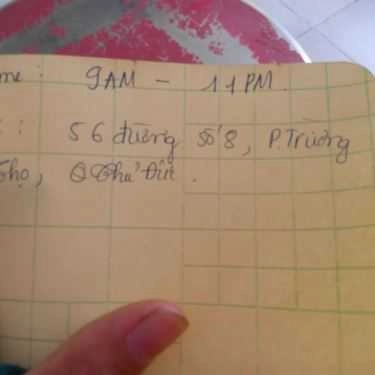 me: 9AM - 11PM.
: 56 đường số 8, P. Trường
Thọ, Q Thủ Đức.